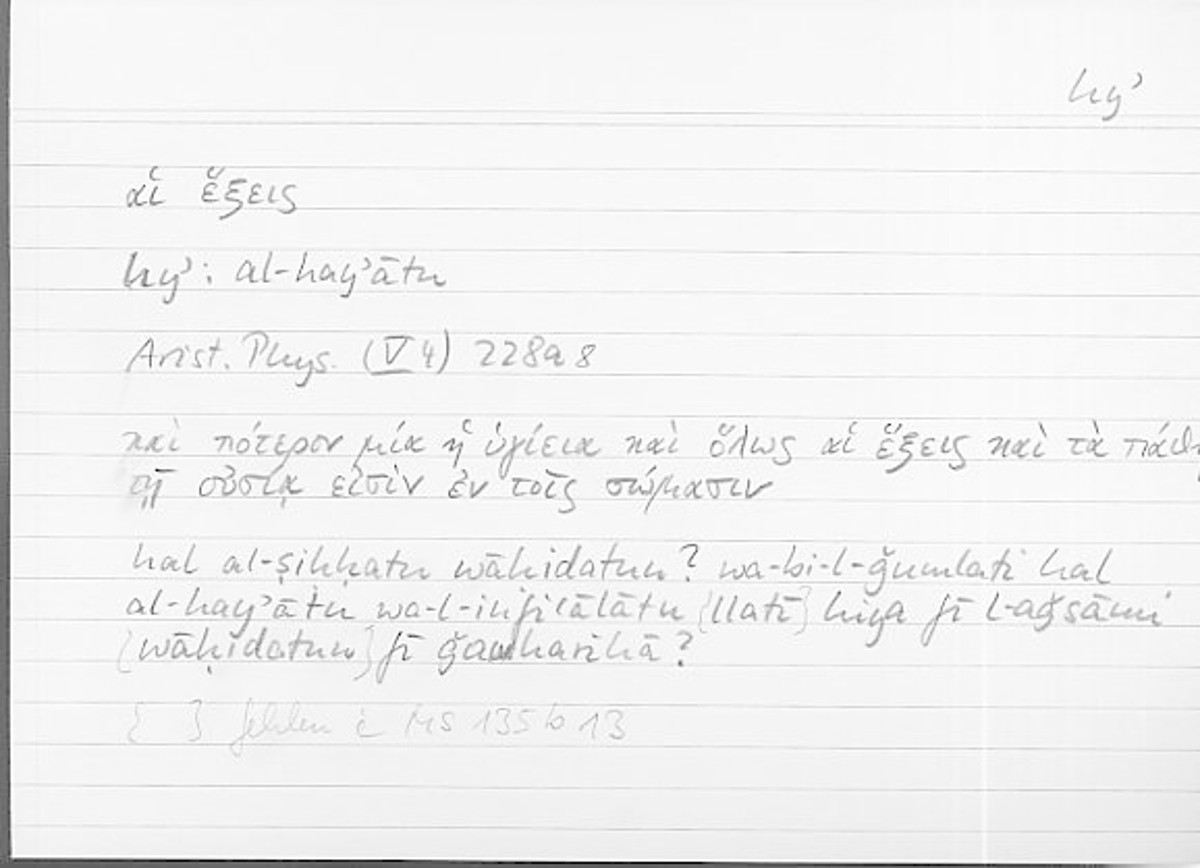 hyʾ
αἱ ἕξεις
hyʾ : al-hayʾātu
Arist. Phys. (V 4) 228a 8
καὶ πότερον μία ἡ ὑγίεια καὶ ὅλως αἱ ἕξεις καὶ τὰ πάθη
τῇ οὐσίᾳ εἰσὶν ἐν τοῖς σώμασιν
hal al-ṣiḥḥatu wāḥidatun? wa-bi-l-ǧumlati hal
al-hayʾātu wa-l-infiʿālātu {llatī} hiya fī l-aǧsāmi
{wāḥidatun} fī ǧawharihā?
{ } fehlen i MS 135 b 13